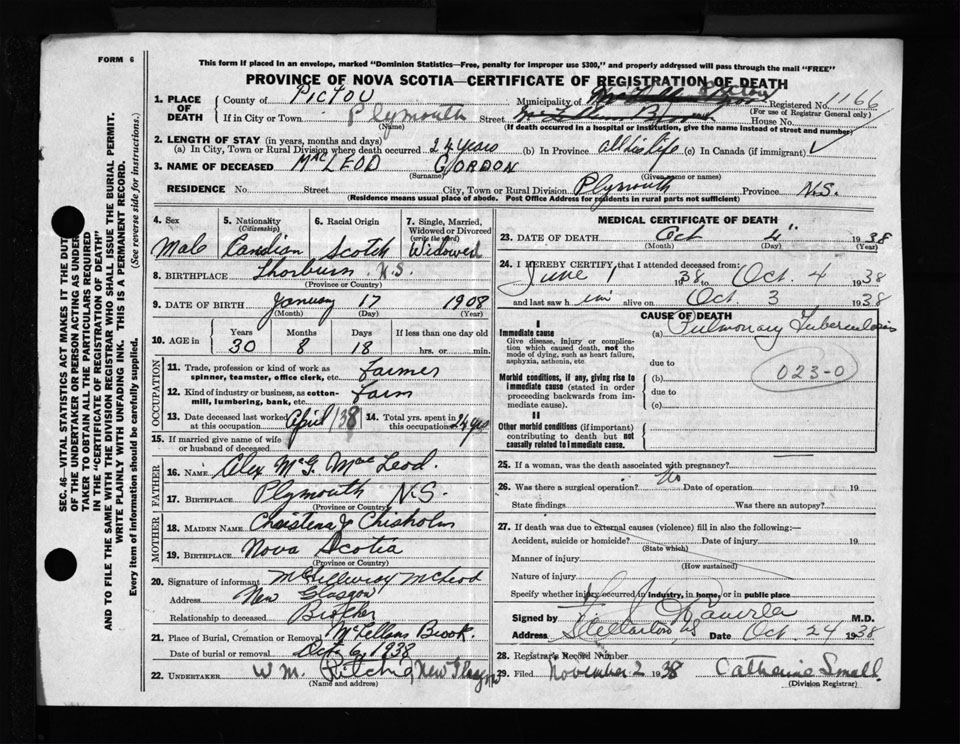 FORM 6
This form if placed in an envelope, marked "Dominion Statistics—Free, penalty for improper use $300," and properly addressed will pass through the mail "FREE"
PROVINCE OF NOVA SCOTIA—CERTIFICATE OF REGISTRATION OF DEATH
1. PLACE OF DEATH
County of Pictou Municipality of Registered No. 1166
(For use of Registrar General only)
If in City or Town Plymouth Street House No.
(Name) (If death occurred in a hospital or institution, give the name instead of street and number)
2. LENGTH OF STAY (in years, months and days)
(a) In City, Town or Rural Division where death occurred 24 years (b) In Province all his life (c) In Canada (if immigrant)
3. NAME OF DECEASED MacLEOD GORDON
(Surname) (Given name or names)
RESIDENCE No. Street City, Town or Rural Division Plymouth Province N.S.
(Residence means usual place of abode. Post Office Address for residents in rural parts not sufficient)
4. Sex Male
5. Nationality (Citizenship) Candian
6. Racial Origin Scotch
7. Single, Married, Widowed or Divorced (write the word) Widowed
8. BIRTHPLACE Thorburn N.S.
(Province or Country)
9. DATE OF BIRTH January 17 1908
(Month) (Day) (Year)
10. AGE in Years Months Days If less than one day old
30 8 18 hrs. or min.
OCCUPATION
11. Trade, profession or kind of work as spinner, teamster, office clerk, etc. Farmer
12. Kind of industry or business, as cotton-mill, lumbering, bank, etc. Farm
13. Date deceased last worked at this occupation April /38
14. Total yrs. spent in this occupation 24 yrs
15. If married give name of wife or husband of deceased
FATHER
16. NAME Alex McG. MacLeod.
17. BIRTHPLACE Plymouth N.S.
(Province or Country)
MOTHER
18. MAIDEN NAME Christena J Chisholm
19. BIRTHPLACE Nova Scotia
(Province or Country)
20. Signature of informant McGillivray McLeod
Address New Glasgow
Relationship to deceased Brother
21. Place of Burial, Cremation or Removal McLellans Brook.
Date of burial or removal 1938
22. UNDERTAKER W M. Ritchie New Glasgow
(Name and address)
MEDICAL CERTIFICATE OF DEATH
23. DATE OF DEATH Oct 4" 1938
(Month) (Day) (Year)
24. I HEREBY CERTIFY that I attended deceased from:
June 1938 to Oct. 4 1938
and last saw him alive on Oct. 3 1938
CAUSE OF DEATH
I
Immediate cause (a) Pulmonary Tuberculosis
Give disease, injury or complication which caused death, not the mode of dying, such as heart failure, asphyxia, asthenia, etc.
due to
023-0
Morbid conditions, if any, giving rise to immediate cause (stated in order proceeding backwards from immediate cause).
(b)
due to
(c)
II
Other morbid conditions (if important) contributing to death but not causally related to immediate cause.
25. If a woman, was the death associated with pregnancy?
26. Was there a surgical operation? No Date of operation 19
State findings Was there an autopsy?
27. If death was due to external causes (violence) fill in also the following:—
Accident, suicide or homicide? Date of injury 19
(State which)
Manner of injury
(How sustained)
Nature of injury
Specify whether injury occurred in industry, in home, or in public place
Signed by M.D.
Address Stellarton NS Date Oct. 24 1938
28. Registrar's Record Number
29. Filed November 2 1938 Catharine Small.
(Division Registrar)
SEC. 46—VITAL STATISTICS ACT MAKES IT THE DUTY
OF THE UNDERTAKER OR PERSON ACTING AS UNDER-
TAKER TO OBTAIN ALL THE PARTICULARS REQUIRED
IN THE "CERTIFICATE OF REGISTRATION OF DEATH"
AND TO FILE THE SAME WITH THE DIVISION REGISTRAR WHO SHALL ISSUE THE BURIAL PERMIT.
WRITE PLAINLY WITH UNFADING INK. THIS IS A PERMANENT RECORD.
Every item of information should be carefully supplied. (See reverse side for instructions.)